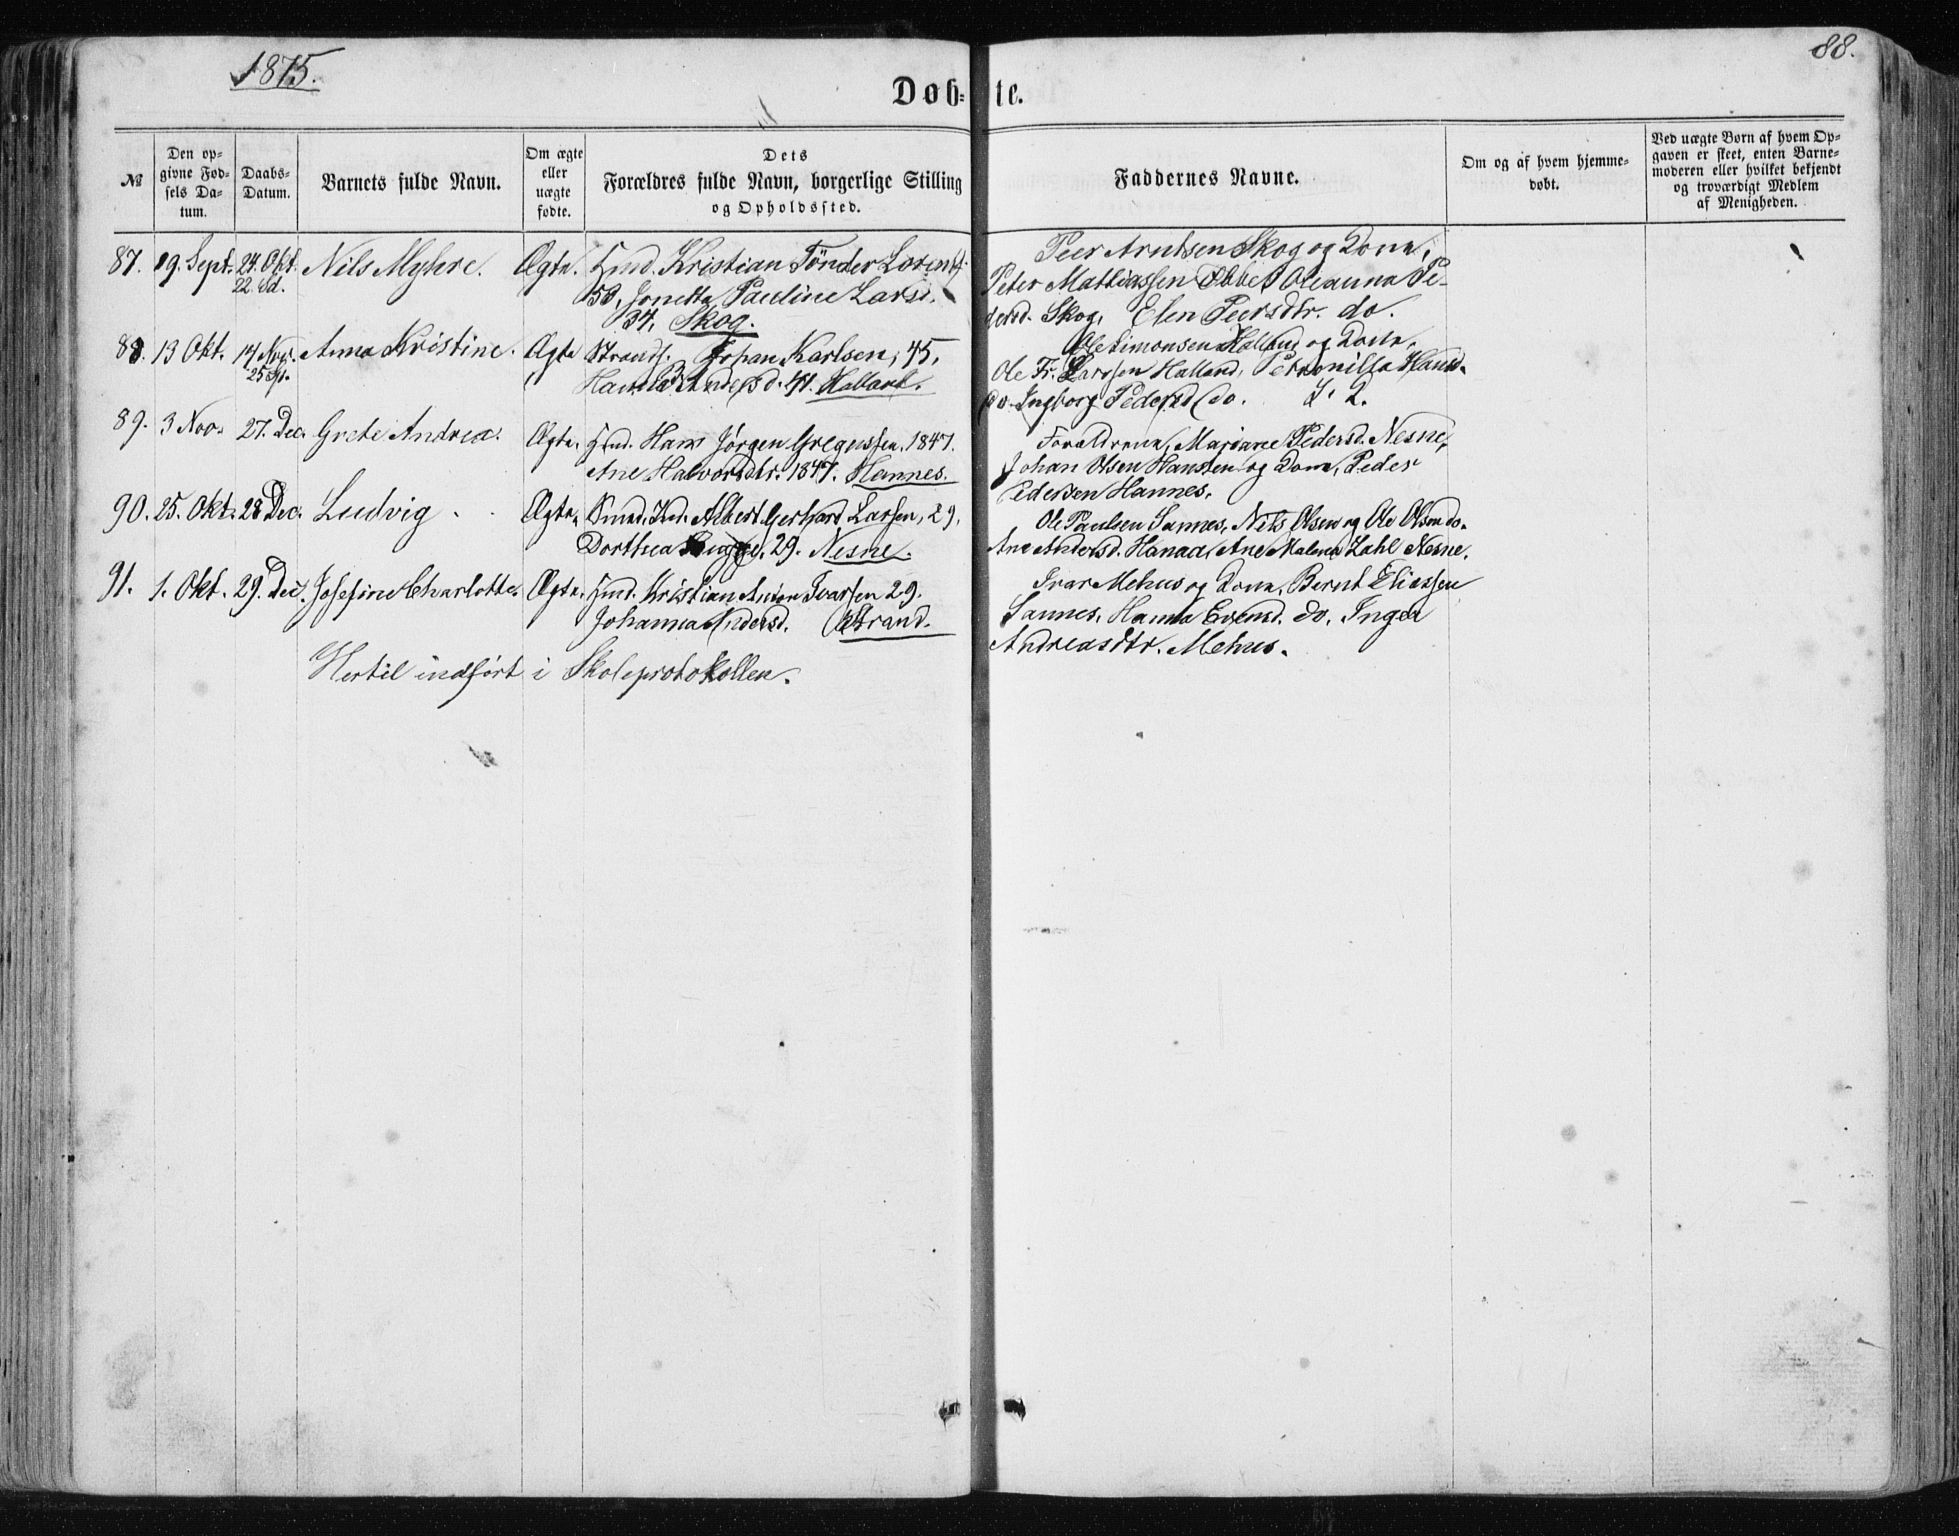 1875.
88.
Døb-te.
№
Den op-
givne Fød-
sels Da-
tum.
Daabs-
Datum.
Barnets fulde Navn.
Om ægte
eller
uægte
fødte.
Dets
Forældres fulde Navn, borgerlige Stilling
og Opholdssted.
Faddernes Navne.
Om og af hvem hjemme-
døbt.
Ved uægte Børn af hvem Op-
gaven er skeet, enten Barne-
moderen eller hvilket bekjendt
og troværdigt Medlem
af Menigheden.
87. 9. Sept. 24. Okt. Nils Myhre. Ægte. Hmd. Kristian Tönder
22. Sd.
50, Jonetta Pauline Larsd.
34, Skog.
Peer Arntsen Skog og Kona,
Peter Mathiassen Oleanna Pe-
dersd. Skog, Elen Peersdtr. do.
88. 13 Okt. 14 Nov. Anna Kristine. Ægte Johan Karlsen, 45,
25
Andersd. 41. Halland.
Ole Simonsen Halland og Kona,
Ole Fr. Larssen Halland, Petronilla
do. Ingborg Pedersd do.
89. 3 Nov. 27. Dec. Grete Andrea. Ægte. Hmd. Hans Jörgen Gregussen, 1847.
Ane Halvorsdtr. 1847. Hannes.
Forældrene, Mariane Pedersd. Nesne,
Johan Olsen Hanssen og Kona, Peder
Pedersen Hannes.
90. 25. Okt. 28 Dec. Ludvig Ægte. Albert Gerhard Larsen, 29,
Dorthea Bugge, 29. Nesne.
Ole Paulsen Sannes, Nils Olsen og Ole Olsen do.
Ane Andersd. Ane Malena Zahl Nesne.
91. 1. Okt. 29. Dec. Josefine Charlotte. Ægte. Hmd. Kristian Anton Ivarsen 29.
Johanna Andersd. Strand.
Ivar Mehus og Kona, Bernt Eliassen
Sannes, Hanna Evensd. do. Inger
Andreasdtr. Mehus.
Hertil indført i Skoleprotokollen.